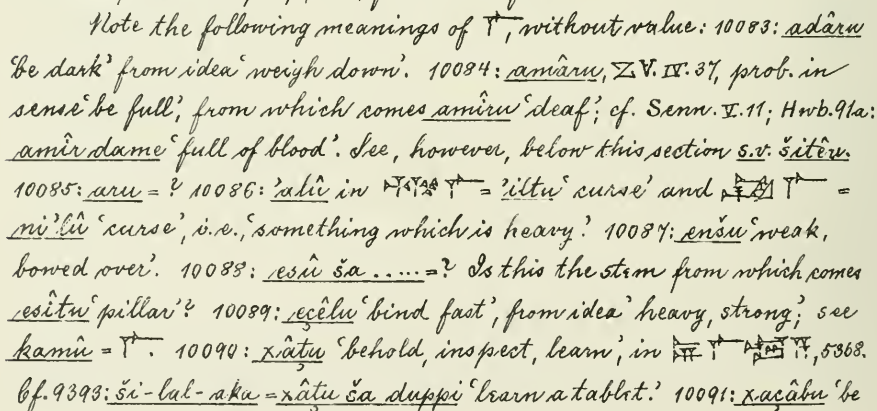 Note the following meanings of 𒇲, without value: 10083: adâru
'be dark' from idea 'weigh down'. 10084: amâru, ZV.IV.37, prob. in
sense 'be full', from which comes amîru 'deaf'; cf. Senn.V.11; Hwb.91a:
amîr dame 'full of blood'. See, however, below this section s.v. šitêu.
10085: aru = ? 10086: 'alû in 𒇲 = 'iltu 'curse' and 𒇲 =
ni'lû 'curse', i.e., 'something which is heavy'. 10087: enšu 'weak,
bowed over'. 10088: esû ša ..... = ? Is this the stem from which comes
esîtu 'pillar'? 10089: eçêlu 'bind fast', from idea 'heavy, strong'; see
kamû = 𒇲. 10090: xâṭu 'behold, inspect, learn', in 𒇲 , 5368.
Cf. 9393: ši-lal-aka = xâṭu ša duppi 'learn a tablet.' 10091: xaçâbu 'be